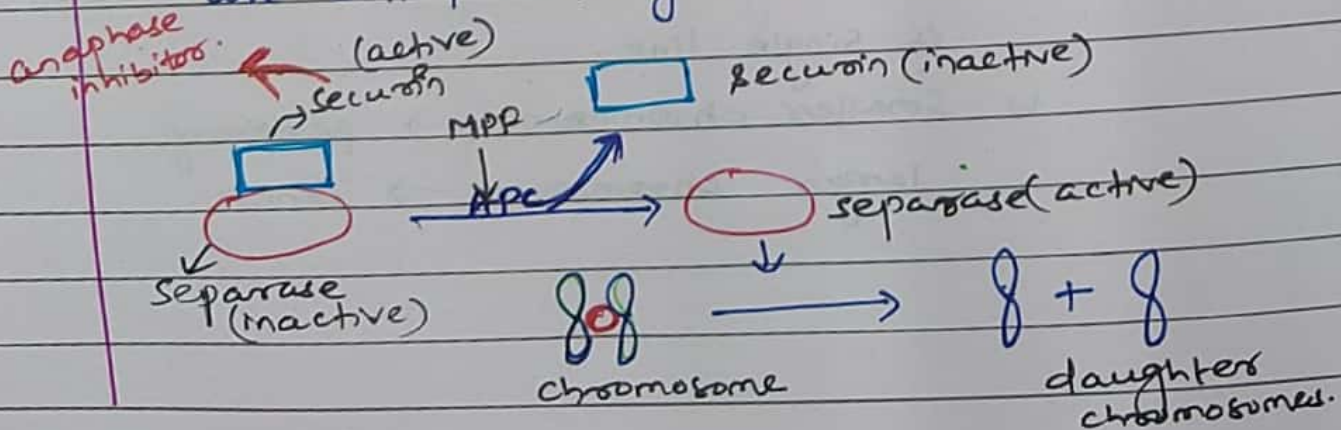 anaphase
inhibitor.
(active)
securin
MPF
APC
securin (inactive)
separase (active)
separase
(inactive)
chromosome
+
daughter
chromosomes.